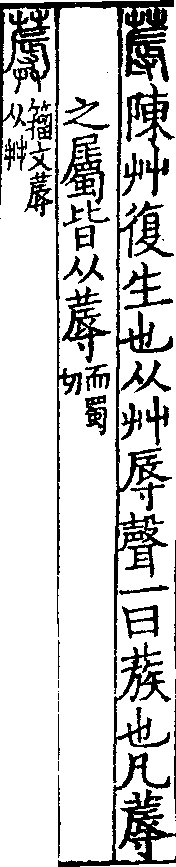 蓐陳艸復生也从艸辱聲一曰蔟也凡蓐
之屬皆从蓐而蜀切
薅籒文蓐从茻